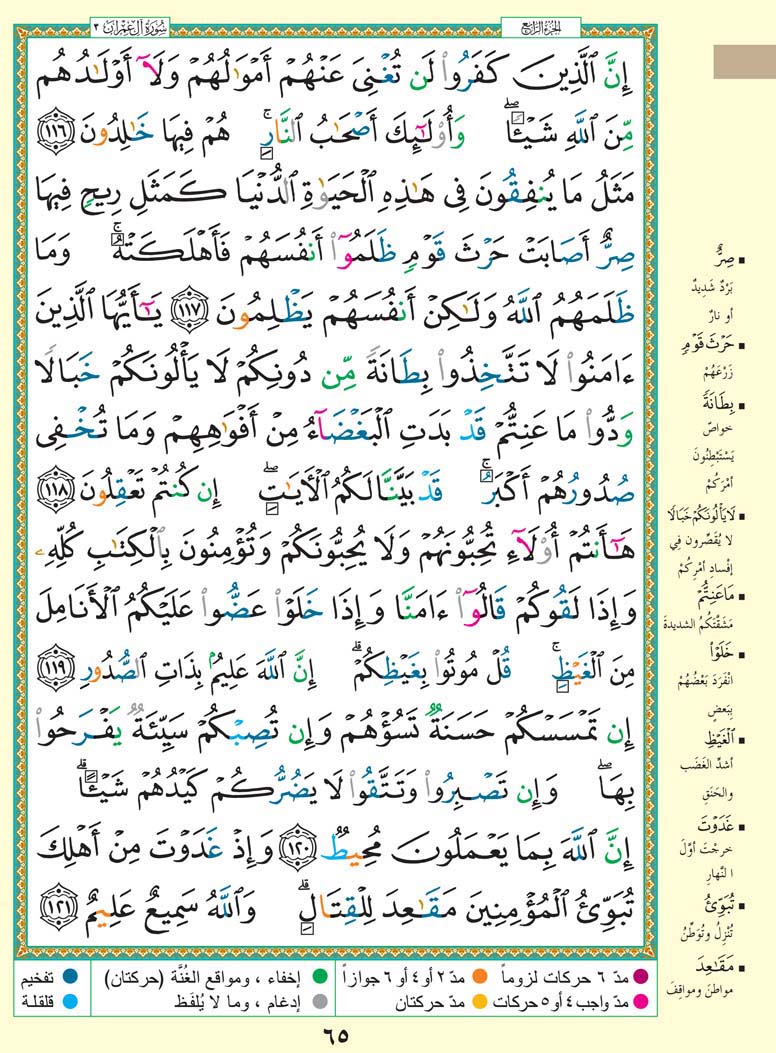 الجزء الرابع
سورة آل عمران ٣
إِنَّ ٱلَّذِينَ كَفَرُوا۟ لَن تُغْنِىَ عَنْهُمْ أَمْوَٰلُهُمْ وَلَآ أَوْلَـٰدُهُم
مِّنَ ٱللَّهِ شَيْـًٔا ۖ وَأُو۟لَـٰٓئِكَ أَصْحَـٰبُ ٱلنَّارِ ۚ هُمْ فِيهَا خَـٰلِدُونَ ١١٦
مَثَلُ مَا يُنفِقُونَ فِى هَـٰذِهِ ٱلْحَيَوٰةِ ٱلدُّنْيَا كَمَثَلِ رِيحٍ فِيهَا
صِرٌّ أَصَابَتْ حَرْثَ قَوْمٍ ظَلَمُوٓا۟ أَنفُسَهُمْ فَأَهْلَكَتْهُ ۚ وَمَا
ظَلَمَهُمُ ٱللَّهُ وَلَـٰكِنْ أَنفُسَهُمْ يَظْلِمُونَ ١١٧ يَـٰٓأَيُّهَا ٱلَّذِينَ
ءَامَنُوا۟ لَا تَتَّخِذُوا۟ بِطَانَةً مِّن دُونِكُمْ لَا يَأْلُونَكُمْ خَبَالًا
وَدُّوا۟ مَا عَنِتُّمْ قَدْ بَدَتِ ٱلْبَغْضَآءُ مِنْ أَفْوَٰهِهِمْ وَمَا تُخْفِى
صُدُورُهُمْ أَكْبَرُ ۚ قَدْ بَيَّنَّا لَكُمُ ٱلْـَٔايَـٰتِ ۖ إِن كُنتُمْ تَعْقِلُونَ ١١٨
هَـٰٓأَنتُمْ أُو۟لَآءِ تُحِبُّونَهُمْ وَلَا يُحِبُّونَكُمْ وَتُؤْمِنُونَ بِٱلْكِتَـٰبِ كُلِّهِۦ
وَإِذَا لَقُوكُمْ قَالُوٓا۟ ءَامَنَّا وَإِذَا خَلَوْا۟ عَضُّوا۟ عَلَيْكُمُ ٱلْأَنَامِلَ
مِنَ ٱلْغَيْظِ ۚ قُلْ مُوتُوا۟ بِغَيْظِكُمْ ۗ إِنَّ ٱللَّهَ عَلِيمٌۢ بِذَاتِ ٱلصُّدُورِ ١١٩
إِن تَمْسَسْكُمْ حَسَنَةٌ تَسُؤْهُمْ وَإِن تُصِبْكُمْ سَيِّئَةٌ يَفْرَحُوا۟
بِهَا ۖ وَإِن تَصْبِرُوا۟ وَتَتَّقُوا۟ لَا يَضُرُّكُمْ كَيْدُهُمْ شَيْـًٔا ۗ
إِنَّ ٱللَّهَ بِمَا يَعْمَلُونَ مُحِيطٌ ١٢٠ وَإِذْ غَدَوْتَ مِنْ أَهْلِكَ
تُبَوِّئُ ٱلْمُؤْمِنِينَ مَقَـٰعِدَ لِلْقِتَالِ ۗ وَٱللَّهُ سَمِيعٌ عَلِيمٌ ١٢١
▪ صِرٌّ
بَرْدٌ شَدِيدٌ
أو نارٌ
▪ حَرْثَ قَوْمٍ
زَرْعَهُمْ
▪ بِطَانَةً
خواصّ
يَسْتَبْطِنُونَ
أمْرَكُمْ
▪ لَا يَأْلُونَكُمْ خَبَالًا
لا يُقَصِّرون فِي
إفْسادِ أمْرِكُمْ
▪ مَا عَنِتُّمْ
مَشَقَّتَكُمُ الشديدةَ
▪ خَلَوْا۟
انْفَرَدَ بَعْضُهُمْ
بِبَعضٍ
▪ ٱلْغَيْظِ
أشدِّ الغَضَب
والحَنَقِ
▪ غَدَوْتَ
خرجْتَ أوّلَ
النَّهارِ
▪ تُبَوِّئُ
تُنْزِلُ وتُوَطِّنُ
▪ مَقَـٰعِدَ
مواطنَ ومواقِفَ
مدّ ٦ حركات لزوماً
مدّ ٢ أو ٤ أو ٦ جوازاً
إخفاء ، ومواقع الغُنَّة (حركتان)
تفخيم
مدّ واجب ٤ أو ٥ حركات
مدّ حركتان
إدغام ، وما لا يُلفَظ
قلقلة
٦٥